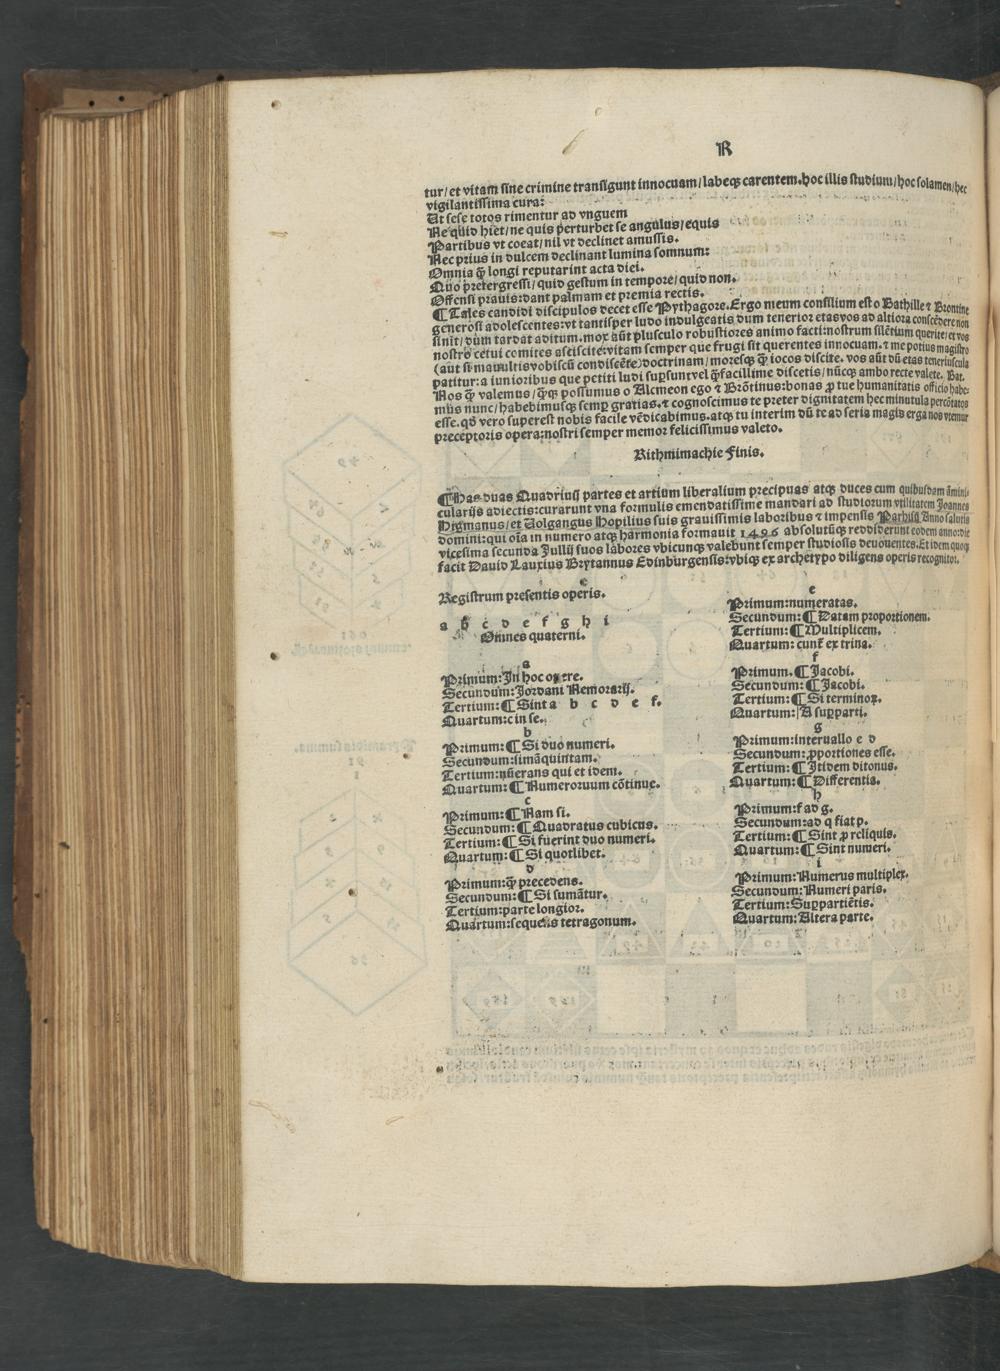 R
tur/et vitam sine crimine transigunt innocuam/labeqꝫ carentem.hoc illis studium/hoc solamen/hec
vigilantissima cura:
Ut sese totos rimentur ad vnguem
Ne quid hiet/ne quis perturbet se angulus/equis
Partibus vt coeat/nil vt declinet amussis.
Nec prius in dulcem declinant lumina somnum:
Omnia q̄ꝫ longi reputarint acta diei.
Quo pretergressi/quid gestum in tempore/quid non.
Offensi prauis:dant palmam et premia rectis.
¶Tales candidi discipulos decet esse Pythagore.Ergo meum consilium est o Bathille ⁊ Brontine
generosi adolescentes:vt tantisper ludo indulgeatis dum tenerior etas vos ad altiora conscēdere non
sinit/dum tardat aditum.mox aūt plusculo robustiores animo facti:nostrum silētium querite/et vos
nostro cetui comites asciscite:vitam semper que frugi sit querentes innocuam.⁊ me potius magistro
(aut si mauultis vobiscū condiscēte)doctrinam/moresqꝫ q̄ꝫ iocos discite. vos aūt dū etas teneriuscula
patitur:a iunioribus que petiti ludi supsunt vel q̄ꝫfacillime discetis/nūcqꝫ ambo recte valete. Bat.
Nos q̄ꝫ valemus/q̄ꝫqꝫ possumus o Alcmeon ego ⁊ Brōtinus:bonas ꝓ tue humanitatis officio habe-
mus nunc/habebimusqꝫ semꝑ gratias.⁊ cognoscimus te preter dignitatem hec minutula percōtatos
esse.qđ vero superest nobis facile vēdicabimus.atqꝫ tu interim dū te ad seria magis erga nos vtemur
preceptoris opera:nostri semper memor felicissimus valeto.
Rithmimachie finis.
¶Has duas Quadriuij partes et artium liberalium precipuas atqꝫ duces cum quibusdam āmini-
cularijs adiectis:curarunt vna formulis emendatissime mandari ad studiorum vtilitatem Joannes
Higmanus/et Uolgangus Hopilius suis grauissimis laboribus ⁊ impensis Parhisij Anno salutis
domini:qui oīa in numero atqꝫ harmonia formauit 1496 absolutūqꝫ reddiderunt eodem anno:die
vicesima secunda Julij suos labores vbicunqꝫ valebunt semper studiosis deuouentes.Et idem quoqꝫ
facit Dauid Lauxius Brytannus Edinburgensis:vbiqꝫ ex archetypo diligens operis recognitor.
Registrum presentis operis.
a b c d e f g h i
Omnes quaterni.
a
Primum:In hoc opere.
Secundum:Jordani Nemorarij.
Tertium:¶Sint a b c d e f.
Quartum:c in se.
b
Primum:¶Si duo numeri.
Secundum:simāquintam.
Tertium:nūerans qui et idem.
Quartum:¶Numerorum cōtinue.
c
Primum:¶Nam si.
Secundum:¶Quadratus cubicus.
Tertium:¶Si fuerint duo numeri.
Quartum:¶Si quotlibet.
d
Primum:q̄ꝫ precedens.
Secundum:¶Si sumātur.
Tertium:parte longior.
Quartum:sequens tetragonum.
e
Primum:numeratas.
Secundum:¶Datam proportionem.
Tertium:¶Multiplicem.
Quartum:cunt̄ ex trina.
f
Primum.¶Jacobi.
Secundum:¶Jacobi.
Tertium:¶Si terminoꝝ.
Quartum:A supparti.
g
Primum:interuallo e d
Secundum:ꝓportiones esse.
Tertium:¶Itidem ditonus.
Quartum:¶Differentia.
h
Primum:f ad g.
Secundum:ad q fiat p.
Tertium:¶Sint ꝓ reliquis.
Quartum:¶Sint numeri.
i
Primum:Numerus multiplex.
Secundum:Numeri paris.
Tertium:Suppartiētis.
Quartum:Altera parte.